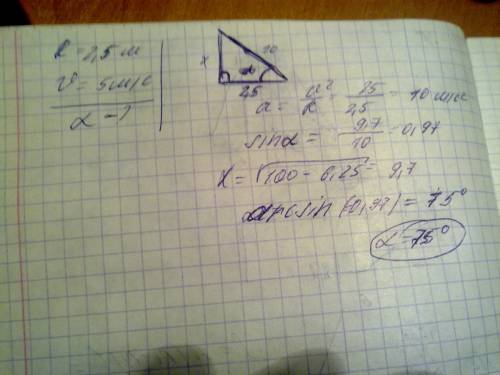 R = 2,5 м
v = 5 м/с
α - ?
x 10 α
2,5
a = u²/R = 25/2,5 = 10 м/с
sinα = 9,7/10 = 0,97
x = √100 - 6,25 = 9,7
arcsin (0,97) = 75°
α = 75°